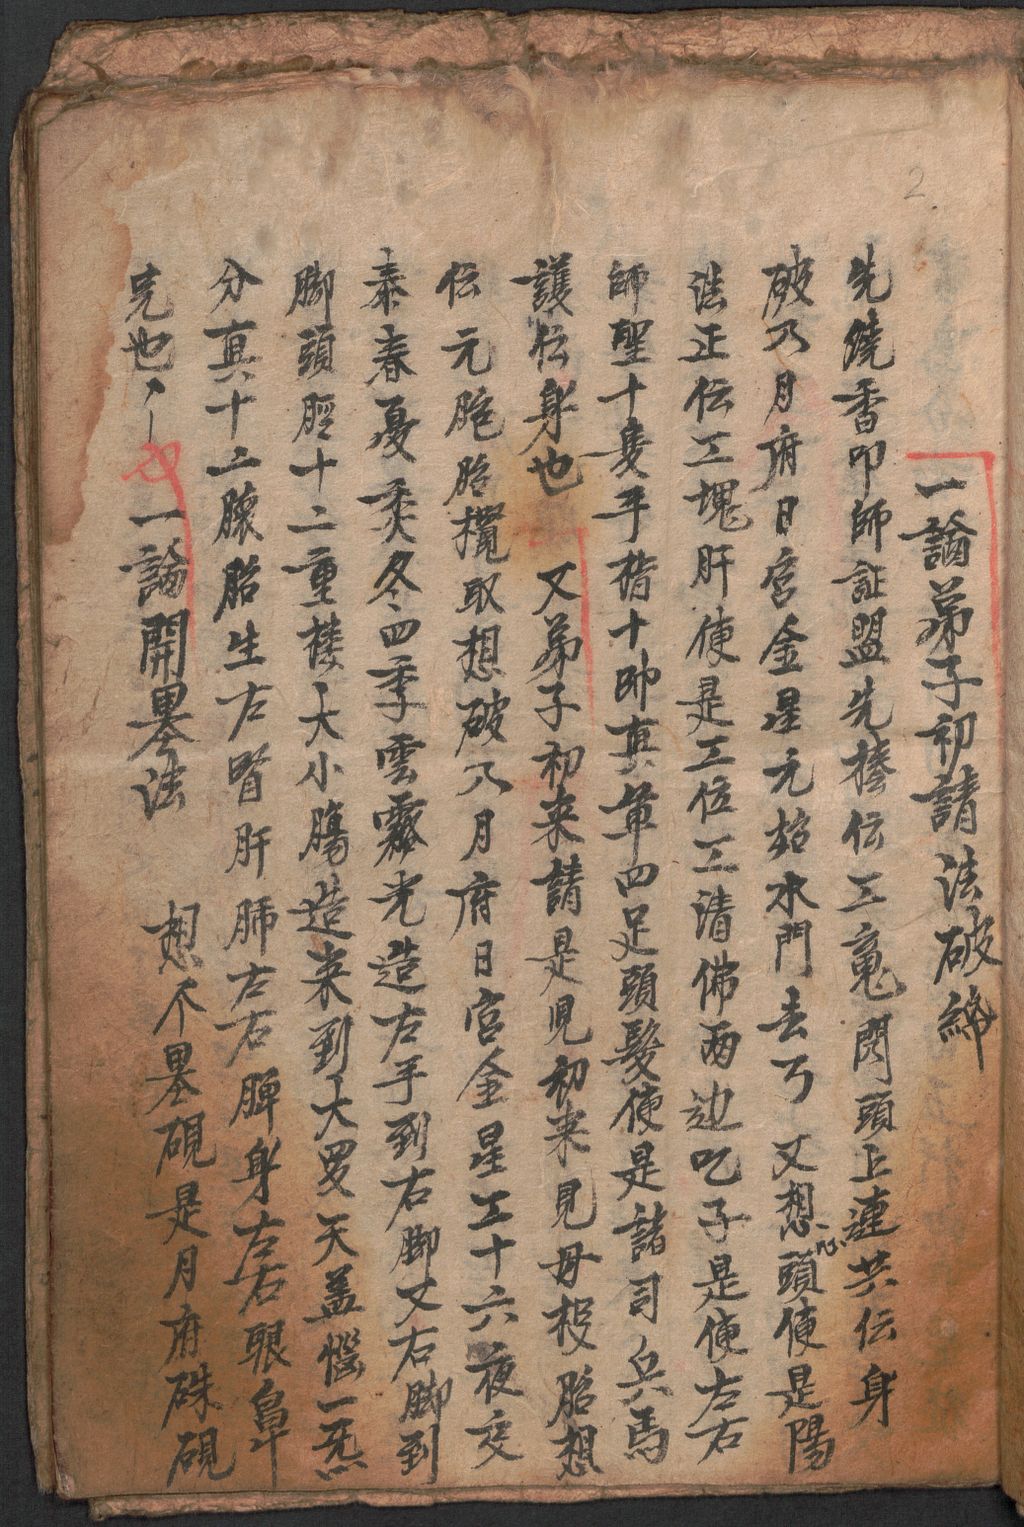 2
一論弟子初請法破綿
先燒香叩師証盟先捧伝三䰟閃頭上連共伝身
破乃月府日宮金星元始水門去了 又想頭使是陽
法正伝三塊肝使是三位三清佛兩边吃子是使左右
師聖十隻手指十帥真軍四足頭髮使是諸司兵馬
護伝身也 又弟子初来請是児初来見母投胎想
伝元胞胎攬取想破入月府日宮金星三十六夜交
泰春夏秀冬四季雲霧光造左手到右脚又右脚到
脚頭脛十二重楼大小膓造来到大罗天盖惱一炁
分真十二臟胎生左腎肝肺左右脾身左右眼鼻
完也 一論開墨法 想个墨硯是月府硃硯